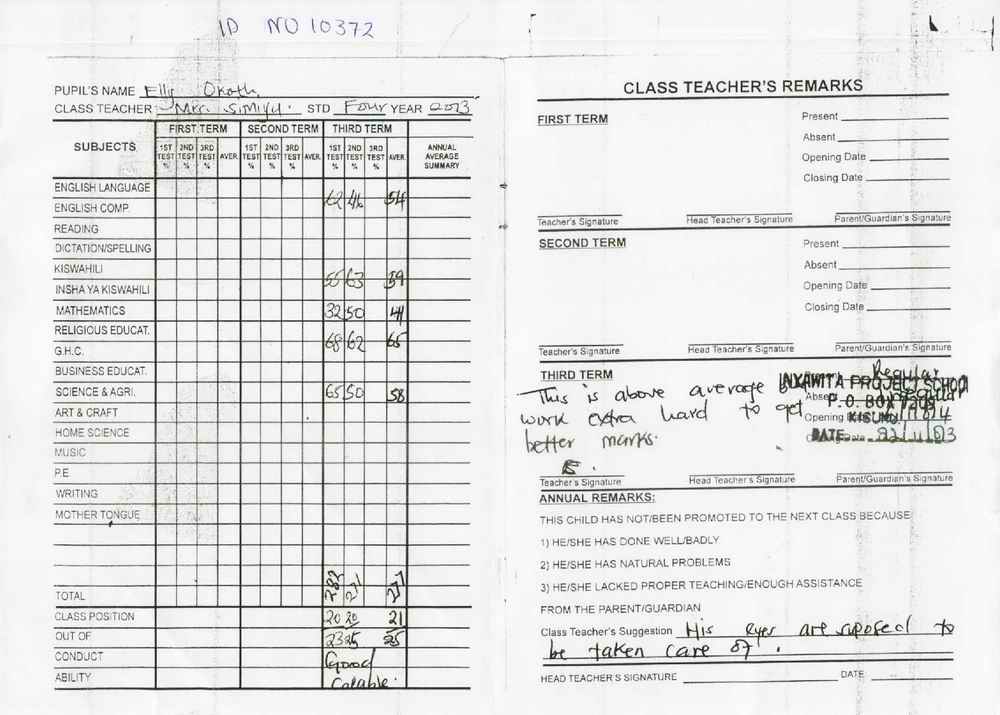 ID NO 10372
PUPIL'S NAME Elly Okoth
CLASS TEACHER Mrs. Simiyu. STD Four YEAR 2013
SUBJECTS
FIRST TERM SECOND TERM THIRD TERM
1ST TEST % 2ND TEST % 3RD TEST % AVER. 1ST TEST % 2ND TEST % 3RD TEST % AVER. 1ST TEST % 2ND TEST % 3RD TEST % AVER. ANNUAL AVERAGE SUMMARY
ENGLISH LANGUAGE
ENGLISH COMP. 62 46 54
READING
DICTATION/SPELLING
KISWAHILI
INSHA YA KISWAHILI 55 63 59
MATHEMATICS 32 50 41
RELIGIOUS EDUCAT.
G.H.C. 68 62 65
BUSINESS EDUCAT.
SCIENCE & AGRI. 65 50 58
ART & CRAFT
HOME SCIENCE
MUSIC
P.E
WRITING
MOTHER TONGUE
TOTAL 282 271 277
CLASS POSITION 20 20 21
OUT OF 23 25 25
CONDUCT Good
ABILITY Capable.
CLASS TEACHER'S REMARKS
FIRST TERM
Present
Absent
Opening Date
Closing Date
Teacher's Signature Head Teacher's Signature Parent/Guardian's Signature
SECOND TERM
Present
Absent
Opening Date
Closing Date
Teacher's Signature Head Teacher's Signature Parent/Guardian's Signature
THIRD TERM
Regular
This is above average
work extra hard to get
better marks.
PROJECT SCHOOL
P.O. BOX
KISUMU
DATE
Teacher's Signature Head Teacher's Signature Parent/Guardian's Signature
ANNUAL REMARKS:
THIS CHILD HAS NOT/BEEN PROMOTED TO THE NEXT CLASS BECAUSE
1) HE/SHE HAS DONE WELL/BADLY
2) HE/SHE HAS NATURAL PROBLEMS
3) HE/SHE LACKED PROPER TEACHING/ENOUGH ASSISTANCE
FROM THE PARENT/GUARDIAN
Class Teacher's Suggestion His eyes are suposed to
be taken care of.
HEAD TEACHER'S SIGNATURE DATE